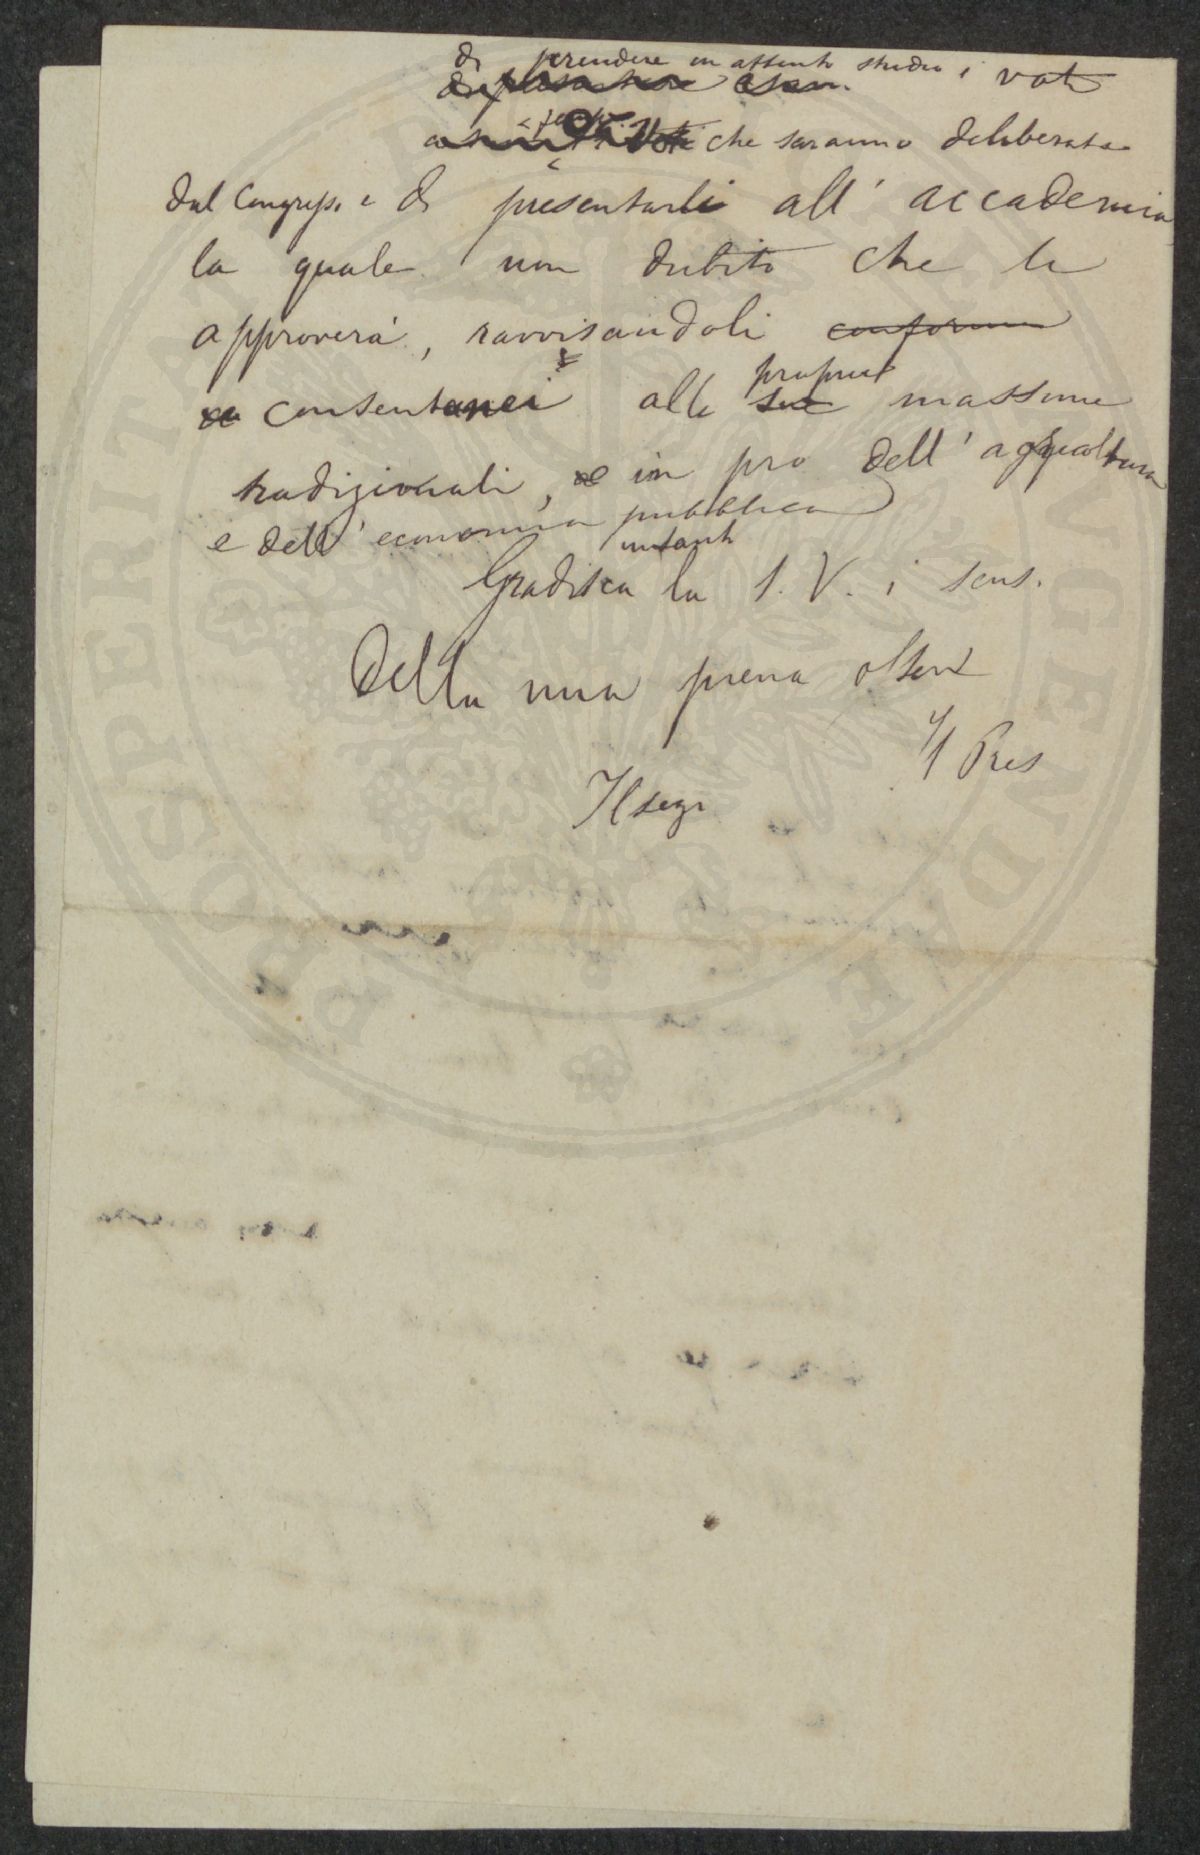 di prendere in attento studio i voti
che saranno deliberati
dal Congresso e di presentarli all'accademia
la quale non dubito che li
approverà, ravvisandoli conformi
consentanei alle sue proprie massime
tradizionali, in pro dell'agricoltura
e dell'economia pubblica
Gradisca intanto la S. V. i sens.
della mia piena osserv
Il Pres
Il segr
PROSPERITATI AUGENDAE